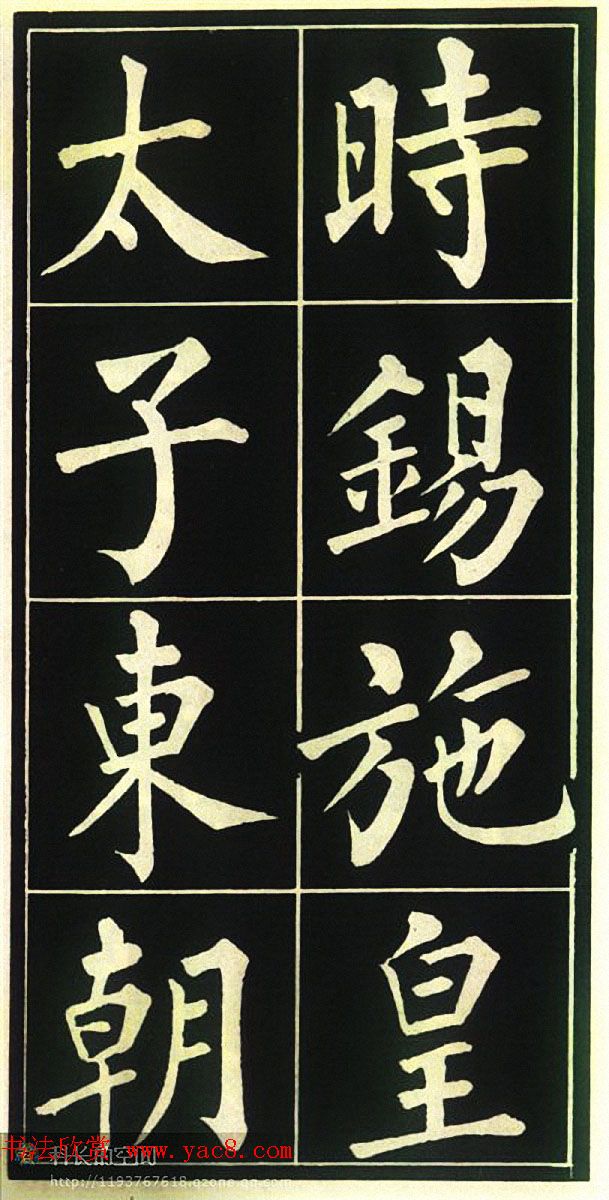 時錫施皇
太子東朝
书法欣赏 www.yac8.com
科长的空间
http://1193767618.qzone.qq.com